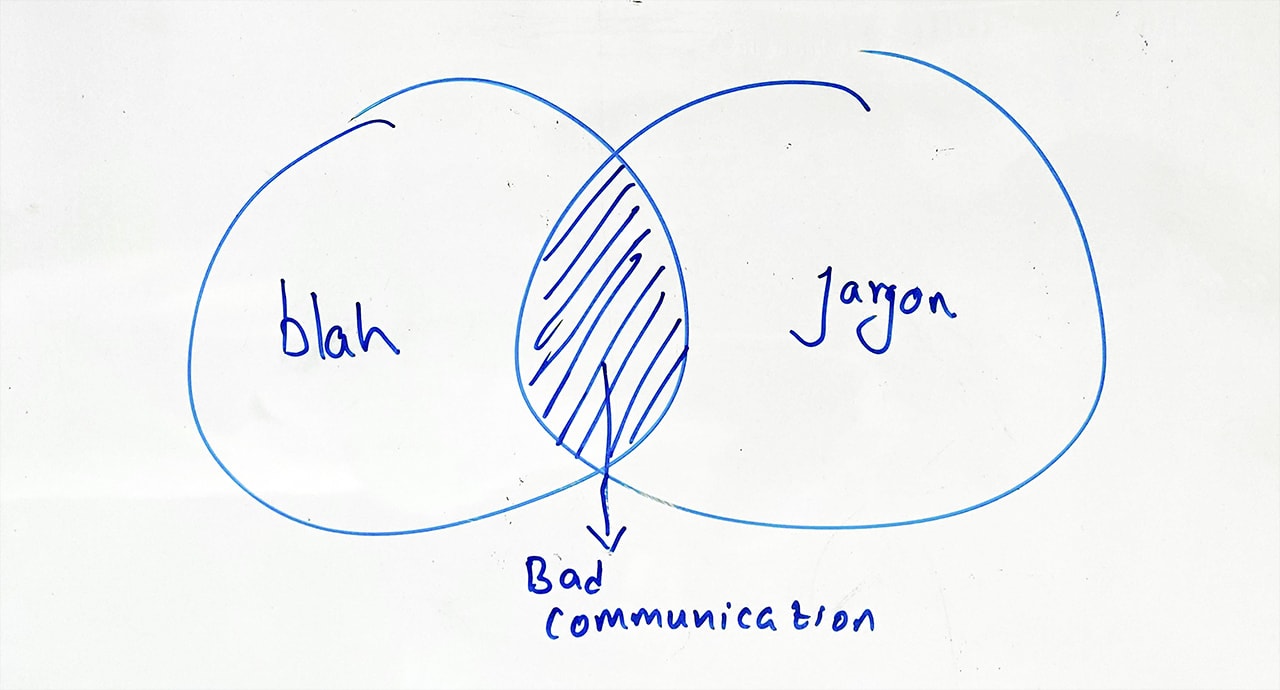 blah
Jargon
Bad
Communication